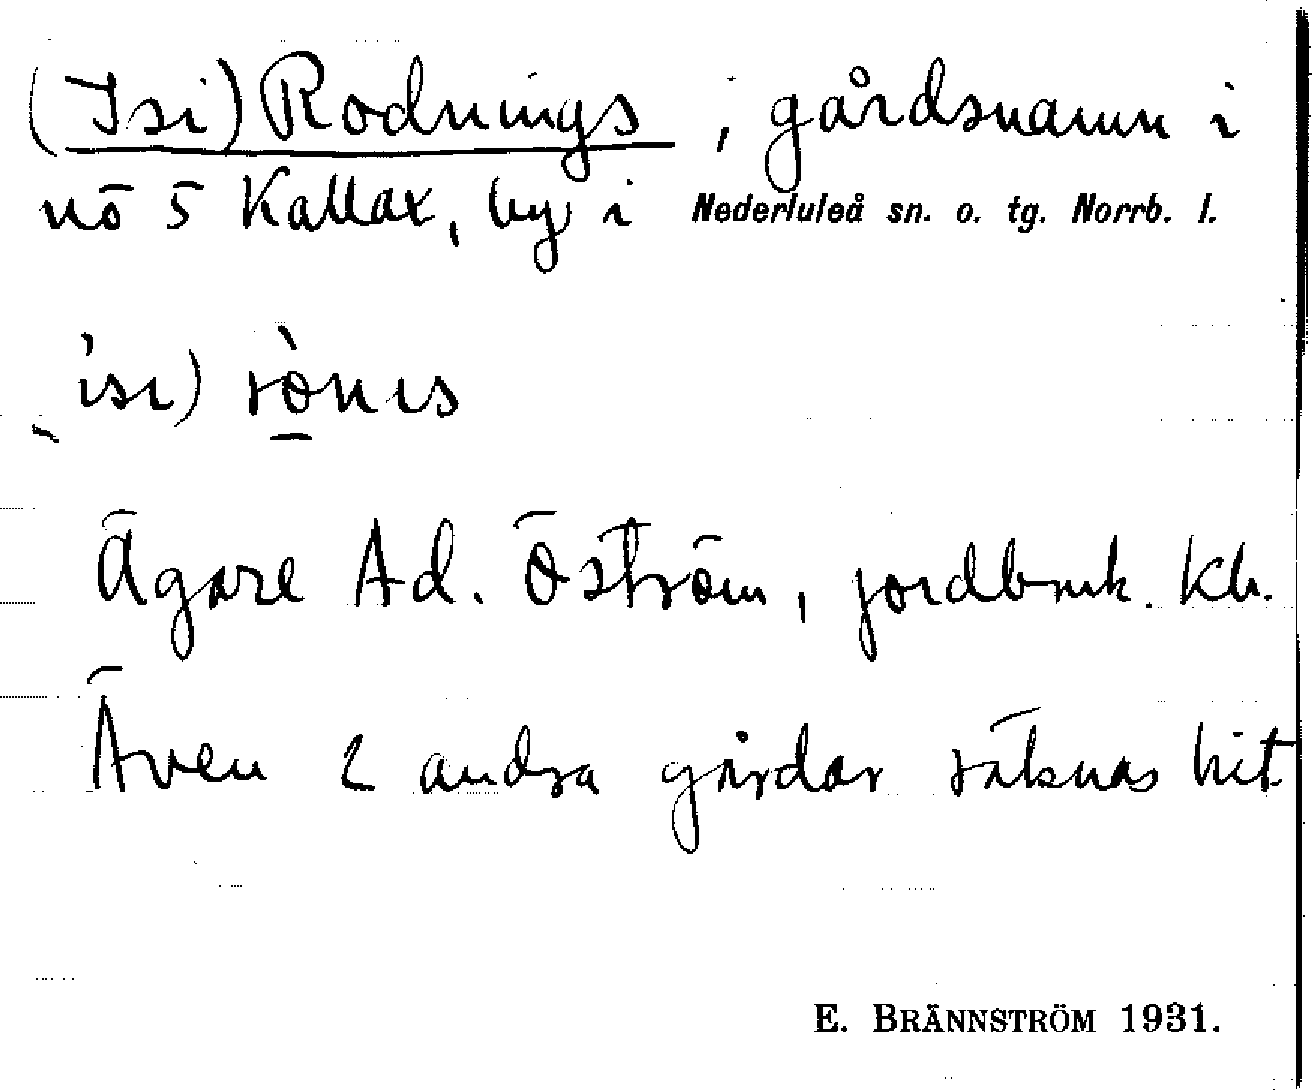 (Isi) Rodnings, gårdsnamn i
nö 5 Kallax, by i Nederluleå sn. o. tg. Norrb. l.
isi) rònıs
Ägare Ad. Öström, jordbruk. Kh.
Även 2 andra gårdar räknas hit
E. BRÄNNSTRÖM 1931.